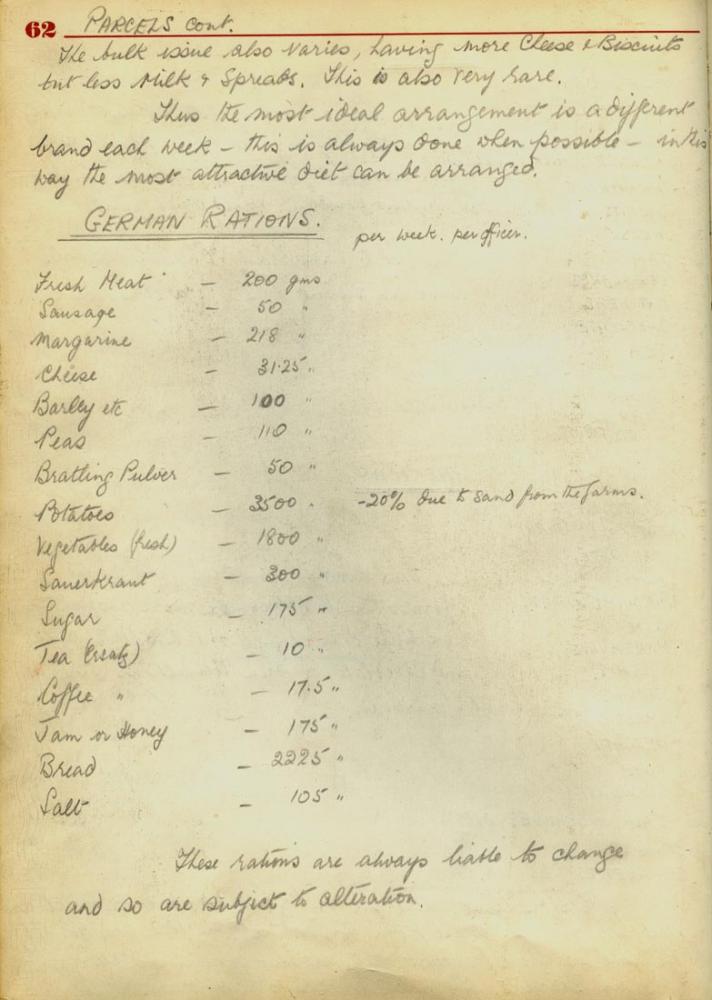 62 PARCELS cont.
The bulk issue also varies, having more Cheese & Biscuits
but less Milk & Spreads. This is also very rare.
Thus the most ideal arrangement is a different
brand each week – this is always done when possible – in this
way the most attractive diet can be arranged.
GERMAN RATIONS. per week. per officer.
Fresh Meat – 200 gms
Sausage – 50 "
Margarine – 218 "
Cheese – 31.25 "
Barley etc – 100 "
Peas – 110 "
Bratling Pulver – 50 "
Potatoes – 3500 " -20% due to sand from the farms.
Vegetables (fresh) – 1800 "
Sauerkraut – 300 "
Sugar – 175 "
Tea (Ersatz) – 10 "
Coffee " – 17.5 "
Jam or Honey – 175 "
Bread – 2225 "
Salt – 105 "
These rations are always liable to change
and so are subject to alteration.